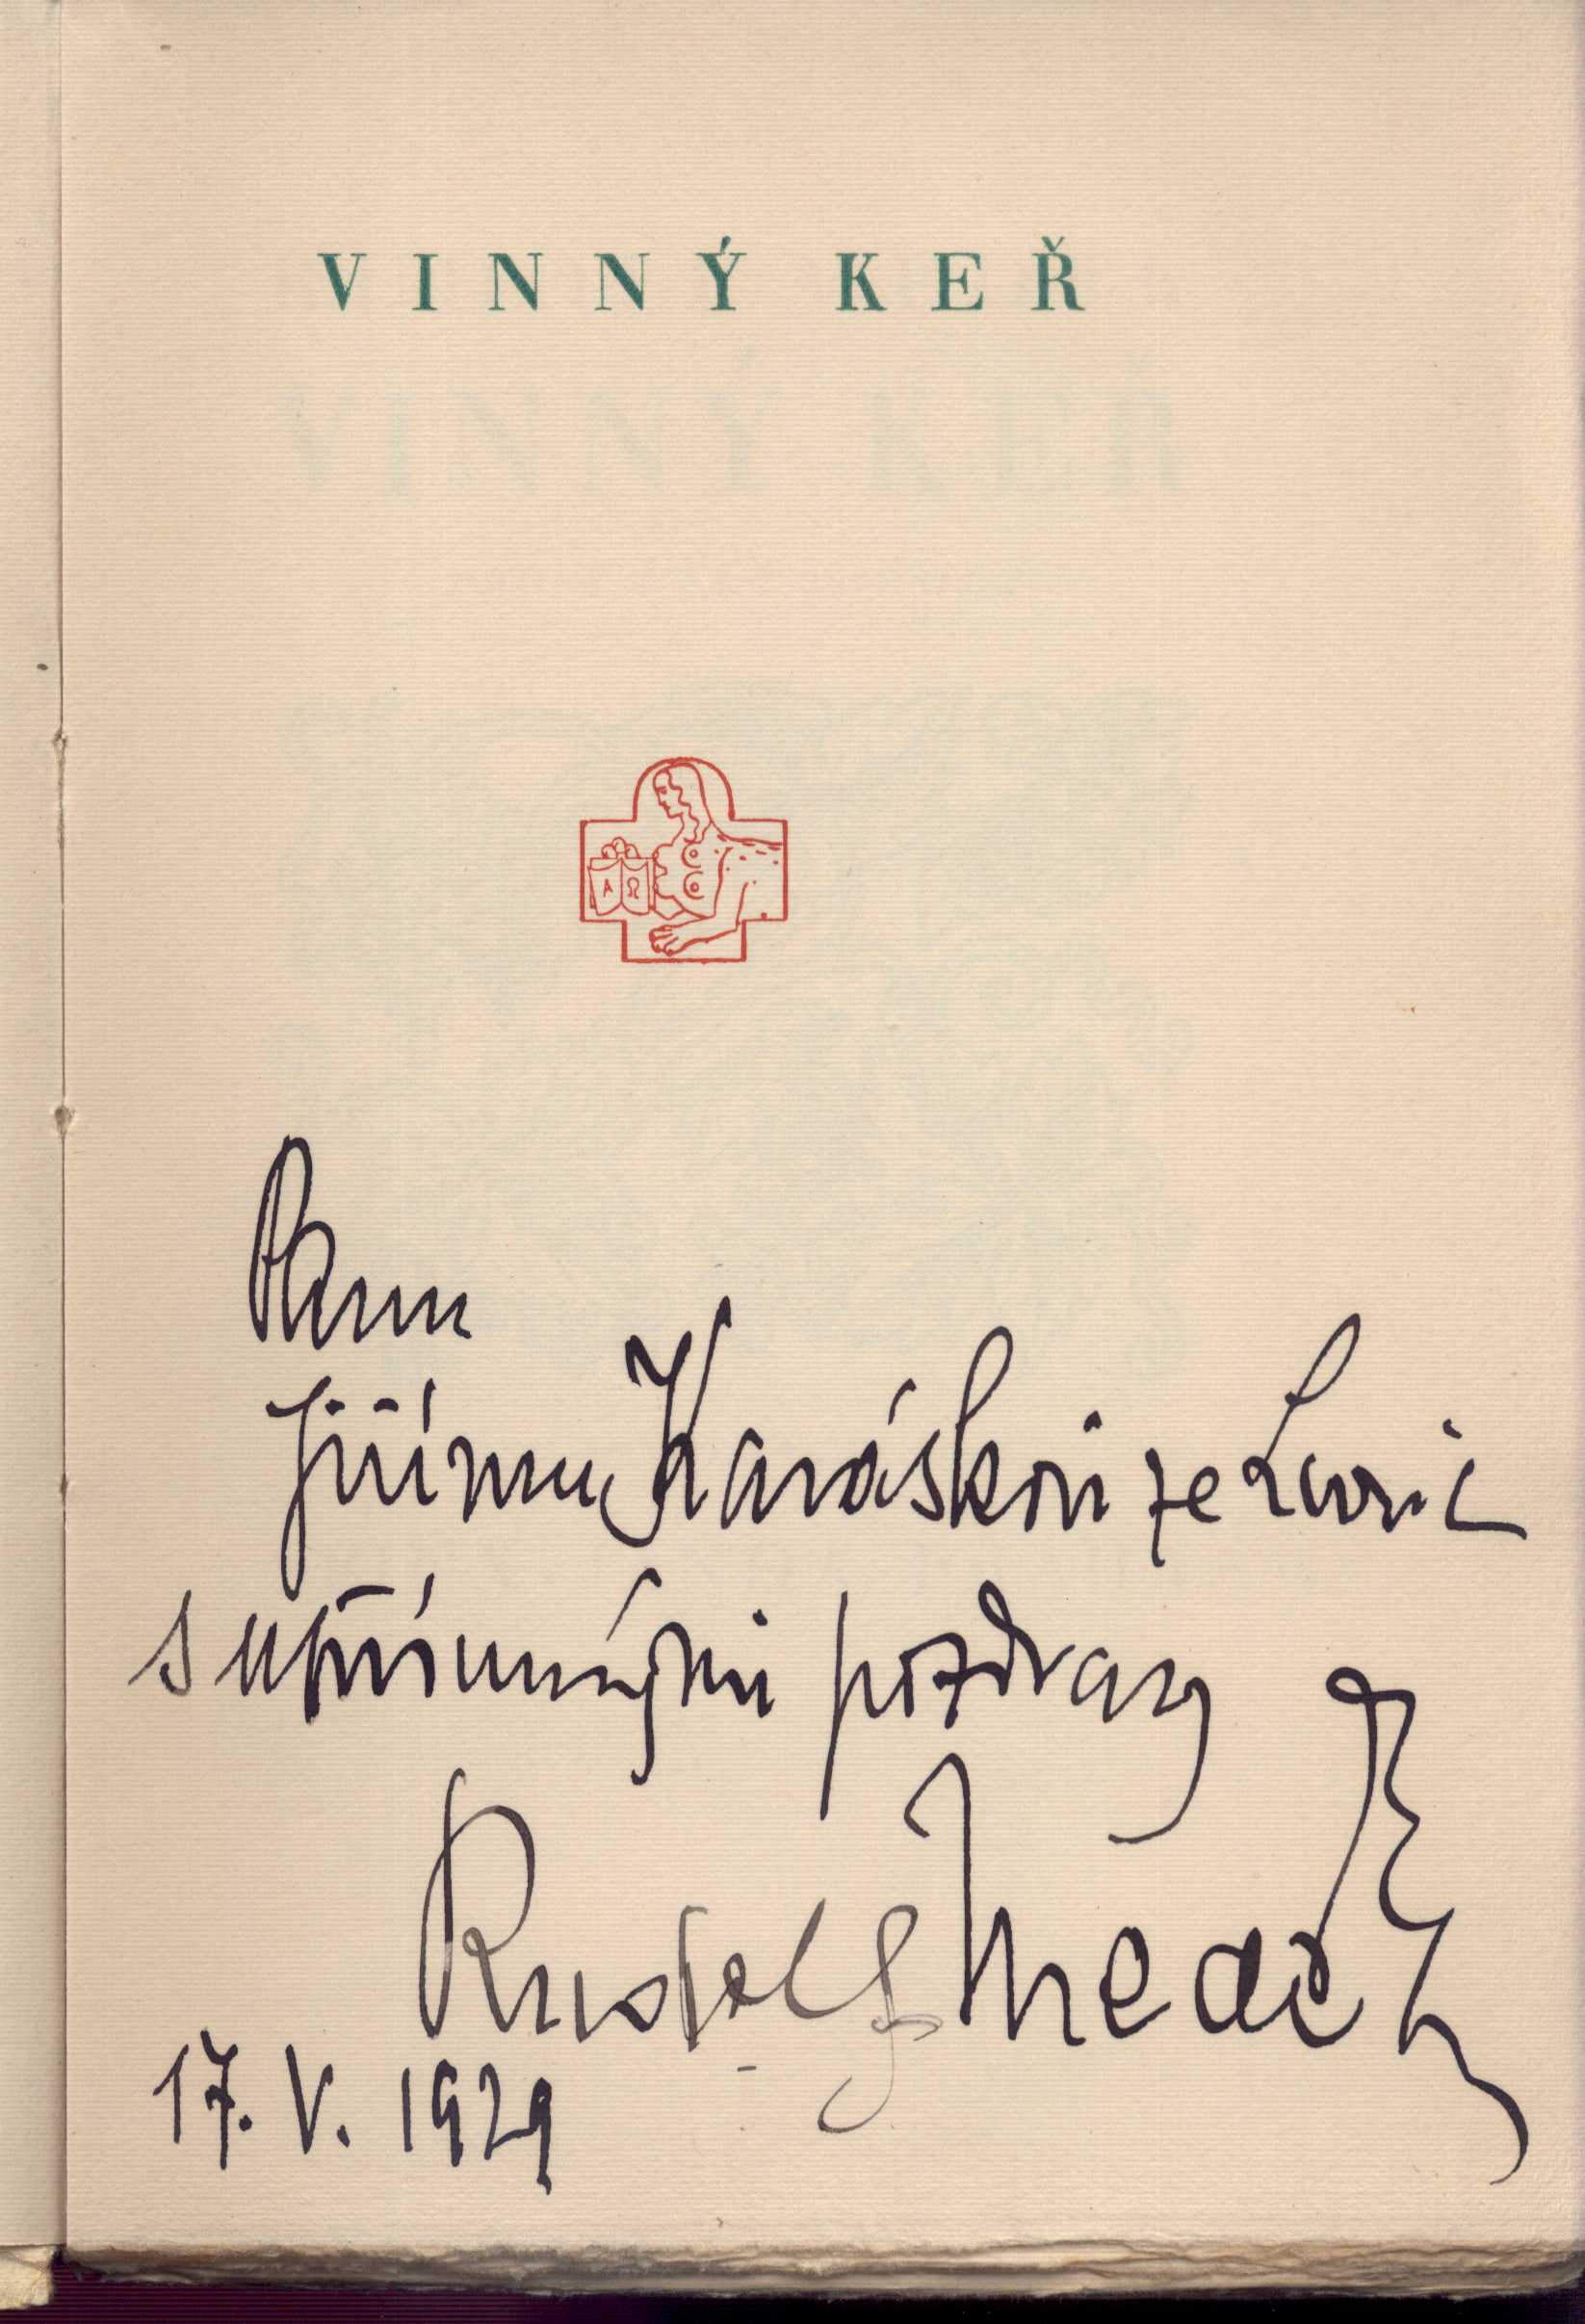 VINNÝ KEŘ
VINNÝ KEŘ
A Ω
Panu
Jiřímu Karáskovi ze Lvovic
s upřímnými pozdravy
Rudolf Medek
17. V. 1929